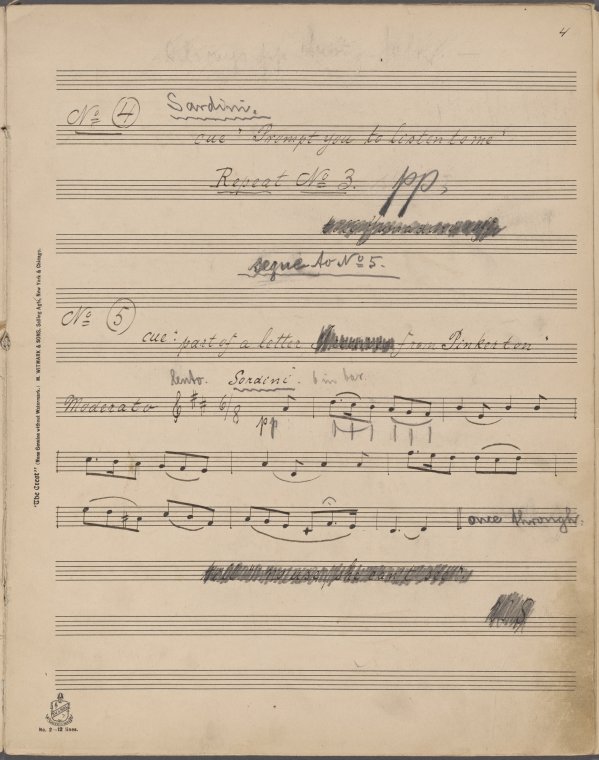 4
Nº 4 Sardini.
cue "Prompt you to listen to me"
Repeat Nº 3. pp,
segue to Nº 5.
Nº 5
cue: part of a letter from Pinkerton"
Lento. Sordini. 6 in bar.
Moderato 6/8
pp
once through.
"The Crest" (None Genuine without Watermark.) M. WITMARK & SONS, Selling Agts, New York & Chicago.
No. 2-12 lines.